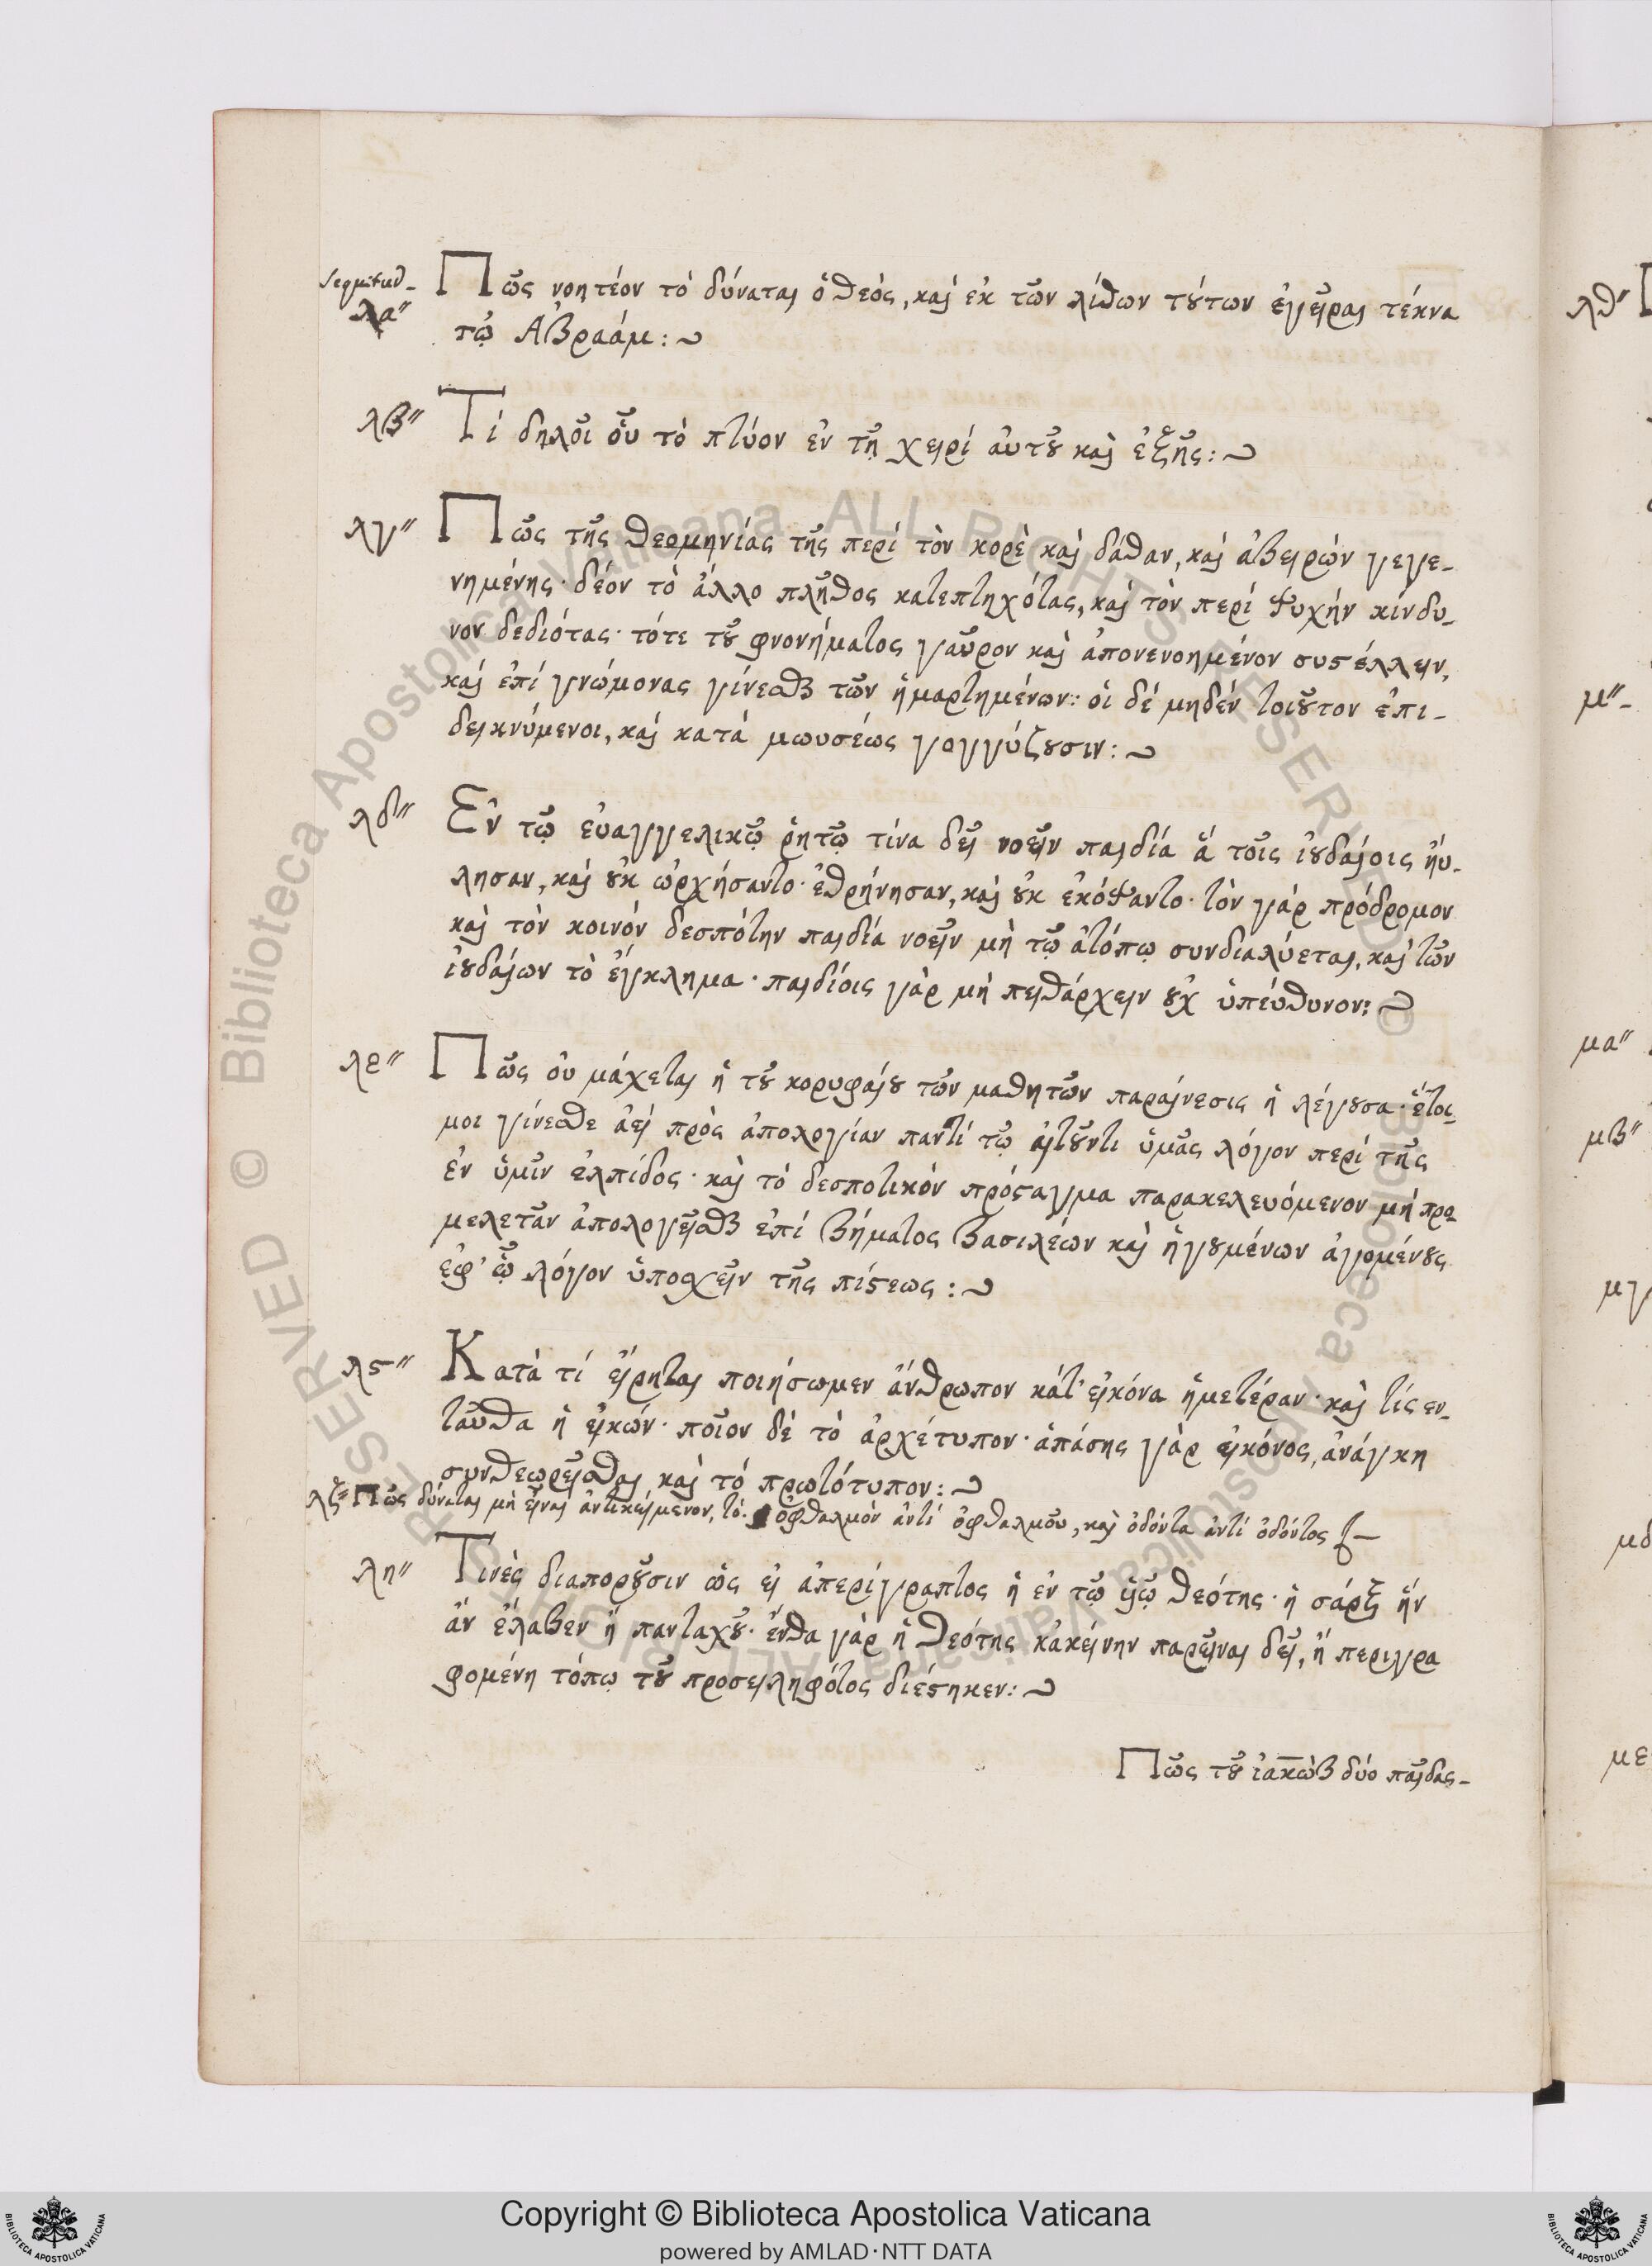 sequitur
λα" Πῶς νοητέον τὸ δύναται ὁ θεὸς, καὶ ἐκ τῶν λίθων τούτων ἐγεῖραι τέκνα
τῷ Ἀβραάμ :
λβ" Τί δηλοῖ οὗ τὸ πτύον ἐν τῇ χειρί αὐτοῦ καὶ ἑξῆς :
λγ" Πῶς τῆς θεομηνίας τῆς περί τὸν κορὲ καὶ δάθαν, καὶ ἀβειρὼν γεγε-
νημένης· δέον τὸ ἄλλο πλῆθος κατεπτηχότας, καὶ τὸν περί ψυχήν κίνδυ-
νον δεδιότας· τότε τοῦ φνονήματος γαῦρον καὶ ἀπονενοημένον συστέλλειν,
καὶ ἐπί γνώμονας γίνεσθαι τῶν ἡμαρτημένων: οἱ δέ μηδέν τοιοῦτον ἐπι-
δεικνύμενοι, καὶ κατά μωυσέως γογγύζουσιν :
λδ" Ἐν τῷ εὐαγγελικῷ ῥητῷ τίνα δεῖ νοεῖν παιδία ἅ τοῖς ἰουδαίοις ηὔ-
λησαν, καὶ οὐκ ὠρχήσαντο· ἐθρήνησαν, καὶ οὐκ ἐκόψαντο· τὸν γάρ πρόδρομον
καὶ τὸν κοινόν δεσπότην παιδία νοεῖν μὴ τῷ ἀτόπῳ συνδιαλύεται, καὶ τῶν
ἰουδαίων τὸ ἔγκλημα· παιδίοις γὰρ μή πειθάρχειν οὐχ ὑπεύθυνον :
λε" Πῶς οὐ μάχεται ἡ τοῦ κορυφαίου τῶν μαθητῶν παραίνεσις ἡ λέγουσα· ἕτοι-
μοι γίνεσθε ἀεὶ πρὸς ἀπολογίαν παντί τῷ αἰτοῦντι ὑμᾶς λόγον περί τῆς
ἐν ὑμῖν ἐλπίδος· καὶ τὸ δεσποτικὸν πρόσταγμα παρακελευόμενον μή προ-
μελετᾶν ἀπολογεῖσθαι ἐπί βήματος βασιλέων καὶ ἡγουμένων ἀγομένους
ἐφ' ᾧ λόγον ὑποσχεῖν τῆς πίστεως :
λϛ" Κατὰ τί εἴρηται ποιήσωμεν ἄνθρωπον κάτ' εἰκόνα ἡμετέραν· καὶ τίς εν-
ταῦθα ἡ εἰκών· ποῖον δὲ τὸ ἀρχέτυπον· ἁπάσης γὰρ εἰκόνος, ἀνάγκη
συνθεωρεῖσθαι καὶ τό πρωτότυπον :
λζ" Πῶς δύναται μὴ εἶναι ἀντικείμενον, τό· ὀφθαλμὸν ἀντί ὀφθαλμοῦ, καὶ ὀδόντα ἀντί ὀδόντος
λη" Τινὲς διαποροῦσιν ὡς εἰ ἀπερίγραπτος ἡ ἐν τῷ υἱῷ θεότης· ἡ σάρξ ἥν
ἄν ἔλαβεν ἤ πανταχοῦ· ἔνθα γὰρ ἡ θεότης κἀκείνην παρεῖναι δεῖ, ἤ περιγρα
φομένη τόπῳ τοῦ προσειληφότος διέστηκεν :
Πῶς τοῦ ἰακὼβ δύο παῖδας-
λθ"
μ"-
μα"
μβ"
μγ
μδ
με
© Biblioteca Apostolica Vaticana ALL RIGHTS RESERVED © Biblioteca Apostolica Vaticana ALL RIGHTS RESERVED
BIBLIOTECA APOSTOLICA VATICANA
Copyright © Biblioteca Apostolica Vaticana
powered by AMLAD·NTT DATA
BIBLIOTECA APOSTOLICA VATICANA